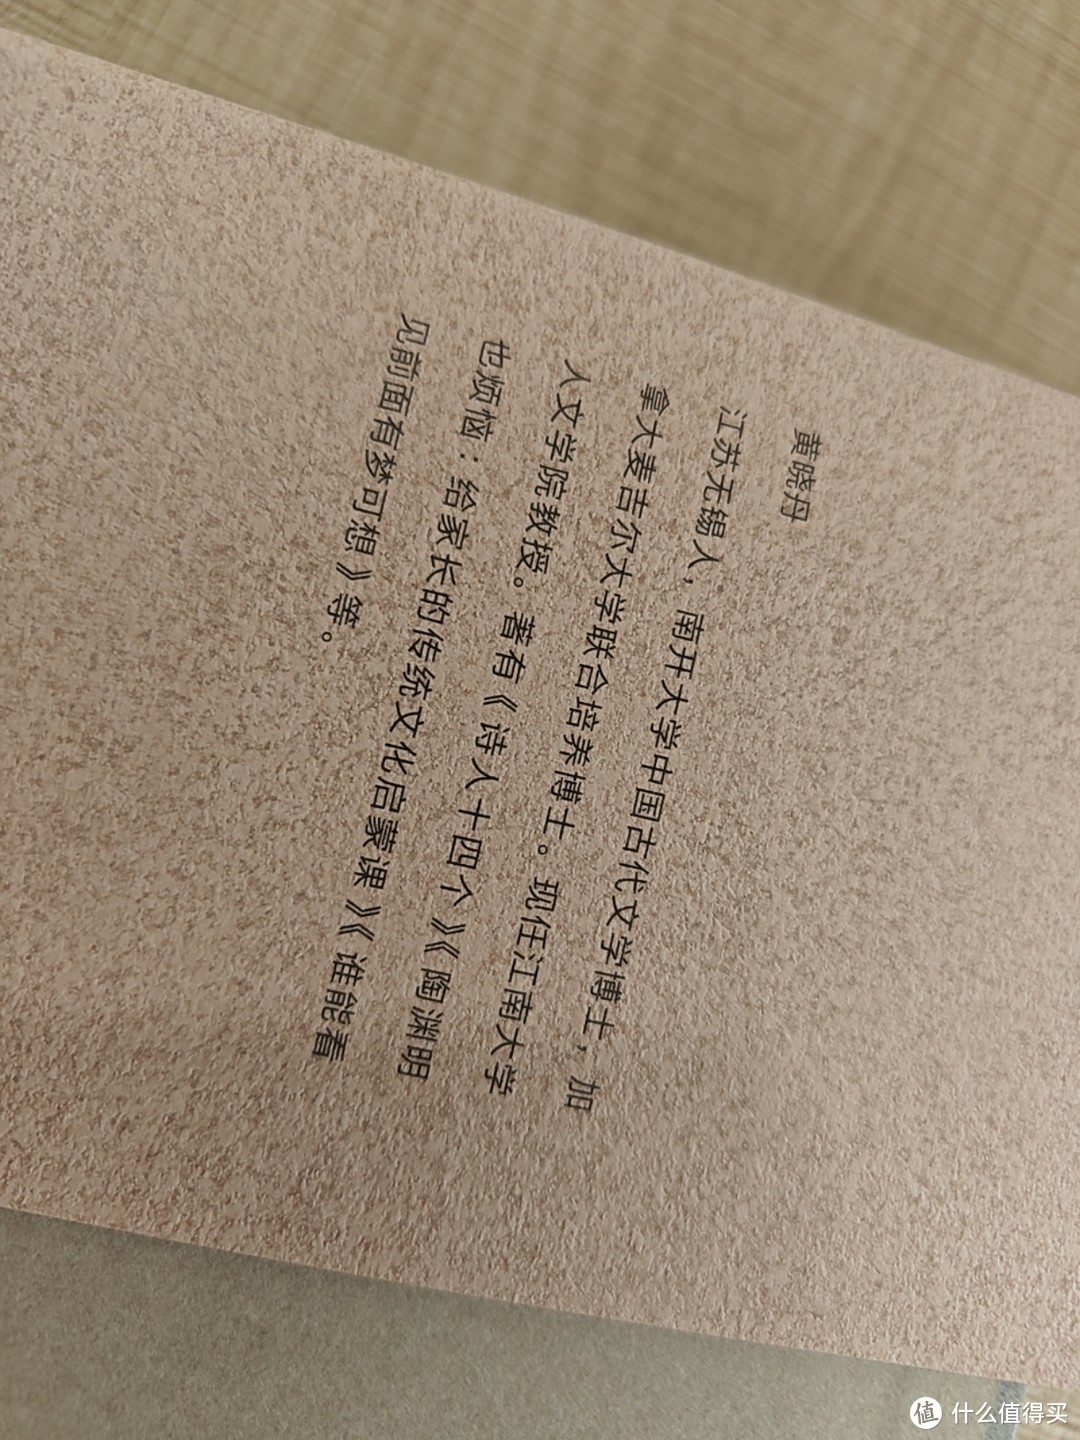 黄晓丹
江苏无锡人，南开大学中国古代文学博士，加
拿大麦吉尔大学联合培养博士。现任江南大学
人文学院教授。著有《诗人十四个》《陶渊明
也烦恼：给家长的传统文化启蒙课》《谁能看
见前面有梦可想》等。
值 什么值得买